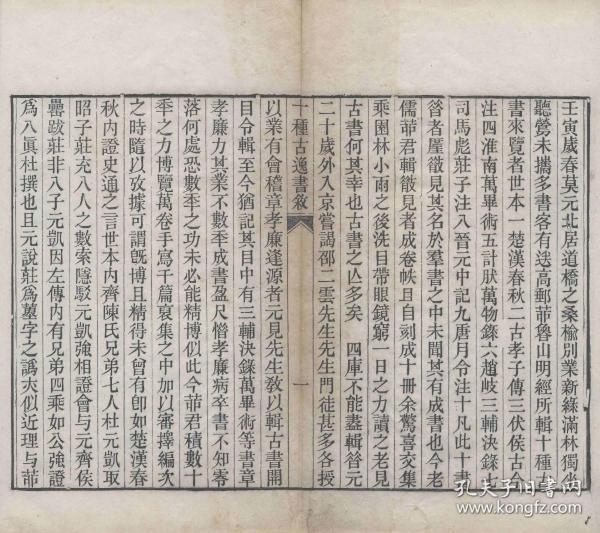 壬寅歲春莫元北居道橋之桑榆別業新綠滿林獨坐
聽鶯未攜多書客有送高郵茆魯山明經所輯十種古
書來覽者世本一楚漢春秋二古孝子傳三伏侯古今
注四淮南萬畢術五計肰萬物錄六趙岐三輔決錄七
司馬彪莊子注八晉元中記九唐月令注十凡此十書
昝者屢徵見其名於羣書之中未聞其有成書也今老
儒茆君輯徵見者成卷帙且自刻成十冊余驚喜交集
乘園林小雨之後洗目帶眼鏡窮一日之力讀之老見
古書何其幸也古書之亾多矣 四庫不能盡輯昝元
二十歲外入京嘗謁邵二雲先生先生門徒甚多各授
十種古逸書敘 一
以業有會稽章孝廉逢源者元見先生敎以輯古書開
目令輯至今猶記其目中有三輔決錄萬畢術等書章
孝廉力其業不數秊成書盈尺惜孝廉病卒書不知零
落何處恐數秊之功未必能精博似此今茆君積數十
秊之力博覽萬卷手寫千篇裒集之中加以審擇編次
之時隨以攷據可謂旣博且精得未曾有卽如楚漢春
秋內證史通之言世本內齊陳氏兄弟七人杜元凱取
昭子莊充八人之數索隱駁元凱強相證會与元齊侯
罍跋莊非八子元凱因左傳內有兄弟四乘如公強證
爲八眞杜撰也且元說莊爲墓字之譌夾似近理与茆
孔夫子旧书网
www.kongfz.com